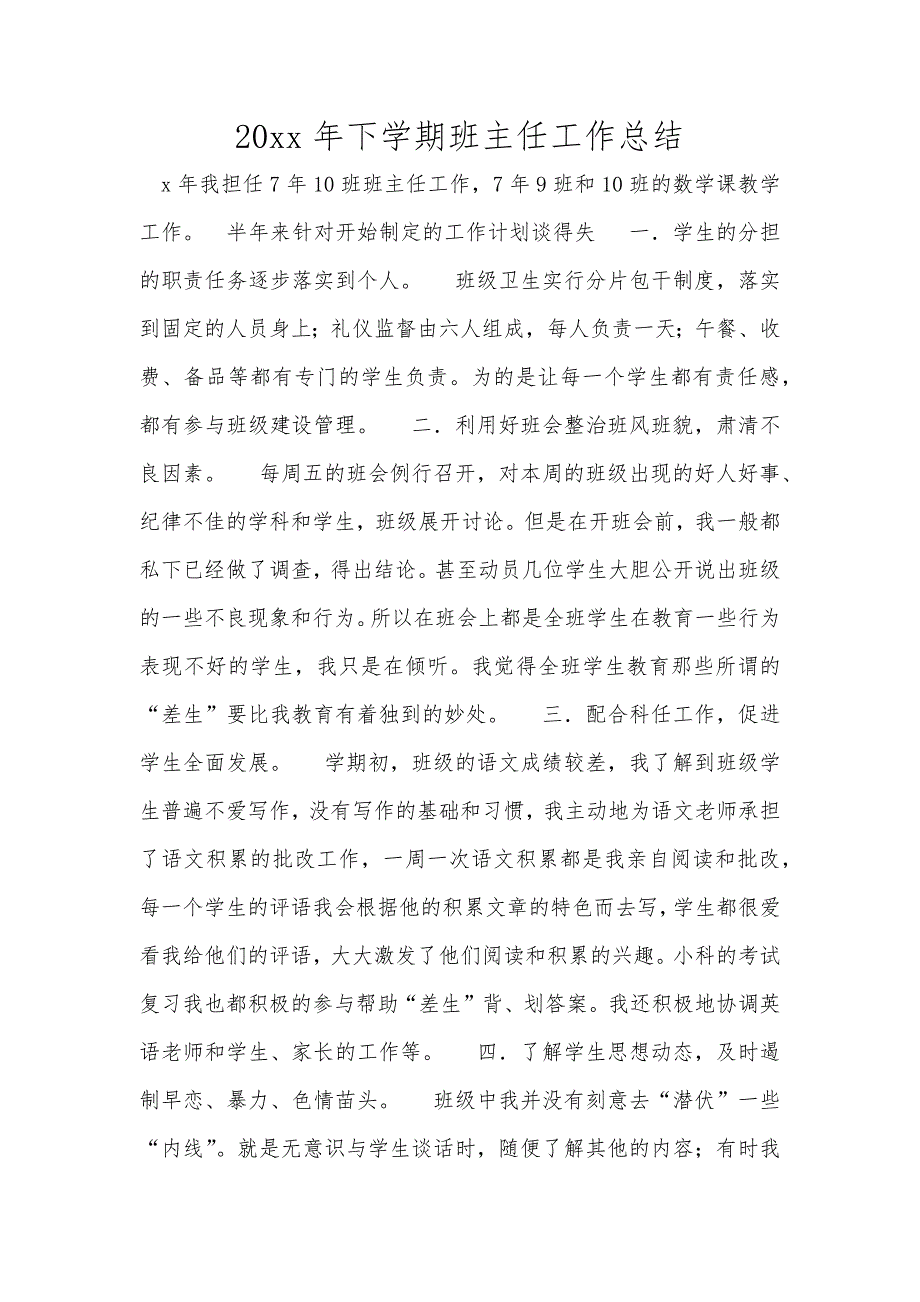 20xx 年下学期班主任工作总结
x 年我担任 7 年 10 班班主任工作，7 年 9 班和 10 班的数学课教学
工作。 半年来针对开始制定的工作计划谈得失 一．学生的分担
的职责任务逐步落实到个人。 班级卫生实行分片包干制度，落实
到固定的人员身上；礼仪监督由六人组成，每人负责一天；午餐、收
费、备品等都有专门的学生负责。为的是让每一个学生都有责任感，
都有参与班级建设管理。 二．利用好班会整治班风班貌，肃清不
良因素。 每周五的班会例行召开，对本周的班级出现的好人好事、
纪律不佳的学科和学生，班级展开讨论。但是在开班会前，我一般都
私下已经做了调查，得出结论。甚至动员几位学生大胆公开说出班级
的一些不良现象和行为。所以在班会上都是全班学生在教育一些行为
表现不好的学生，我只是在倾听。我觉得全班学生教育那些所谓的
“差生”要比我教育有着独到的妙处。 三．配合科任工作，促进
学生全面发展。 学期初，班级的语文成绩较差，我了解到班级学
生普遍不爱写作，没有写作的基础和习惯，我主动地为语文老师承担
了语文积累的批改工作，一周一次语文积累都是我亲自阅读和批改，
每一个学生的评语我会根据他的积累文章的特色而去写，学生都很爱
看我给他们的评语，大大激发了他们阅读和积累的兴趣。小科的考试
复习我也都积极的参与帮助“差生”背、划答案。我还积极地协调英
语老师和学生、家长的工作等。 四．了解学生思想动态，及时遏
制早恋、暴力、色情苗头。 班级中我并没有刻意去“潜伏”一些
“内线”。就是无意识与学生谈话时，随便了解其他的内容；有时我